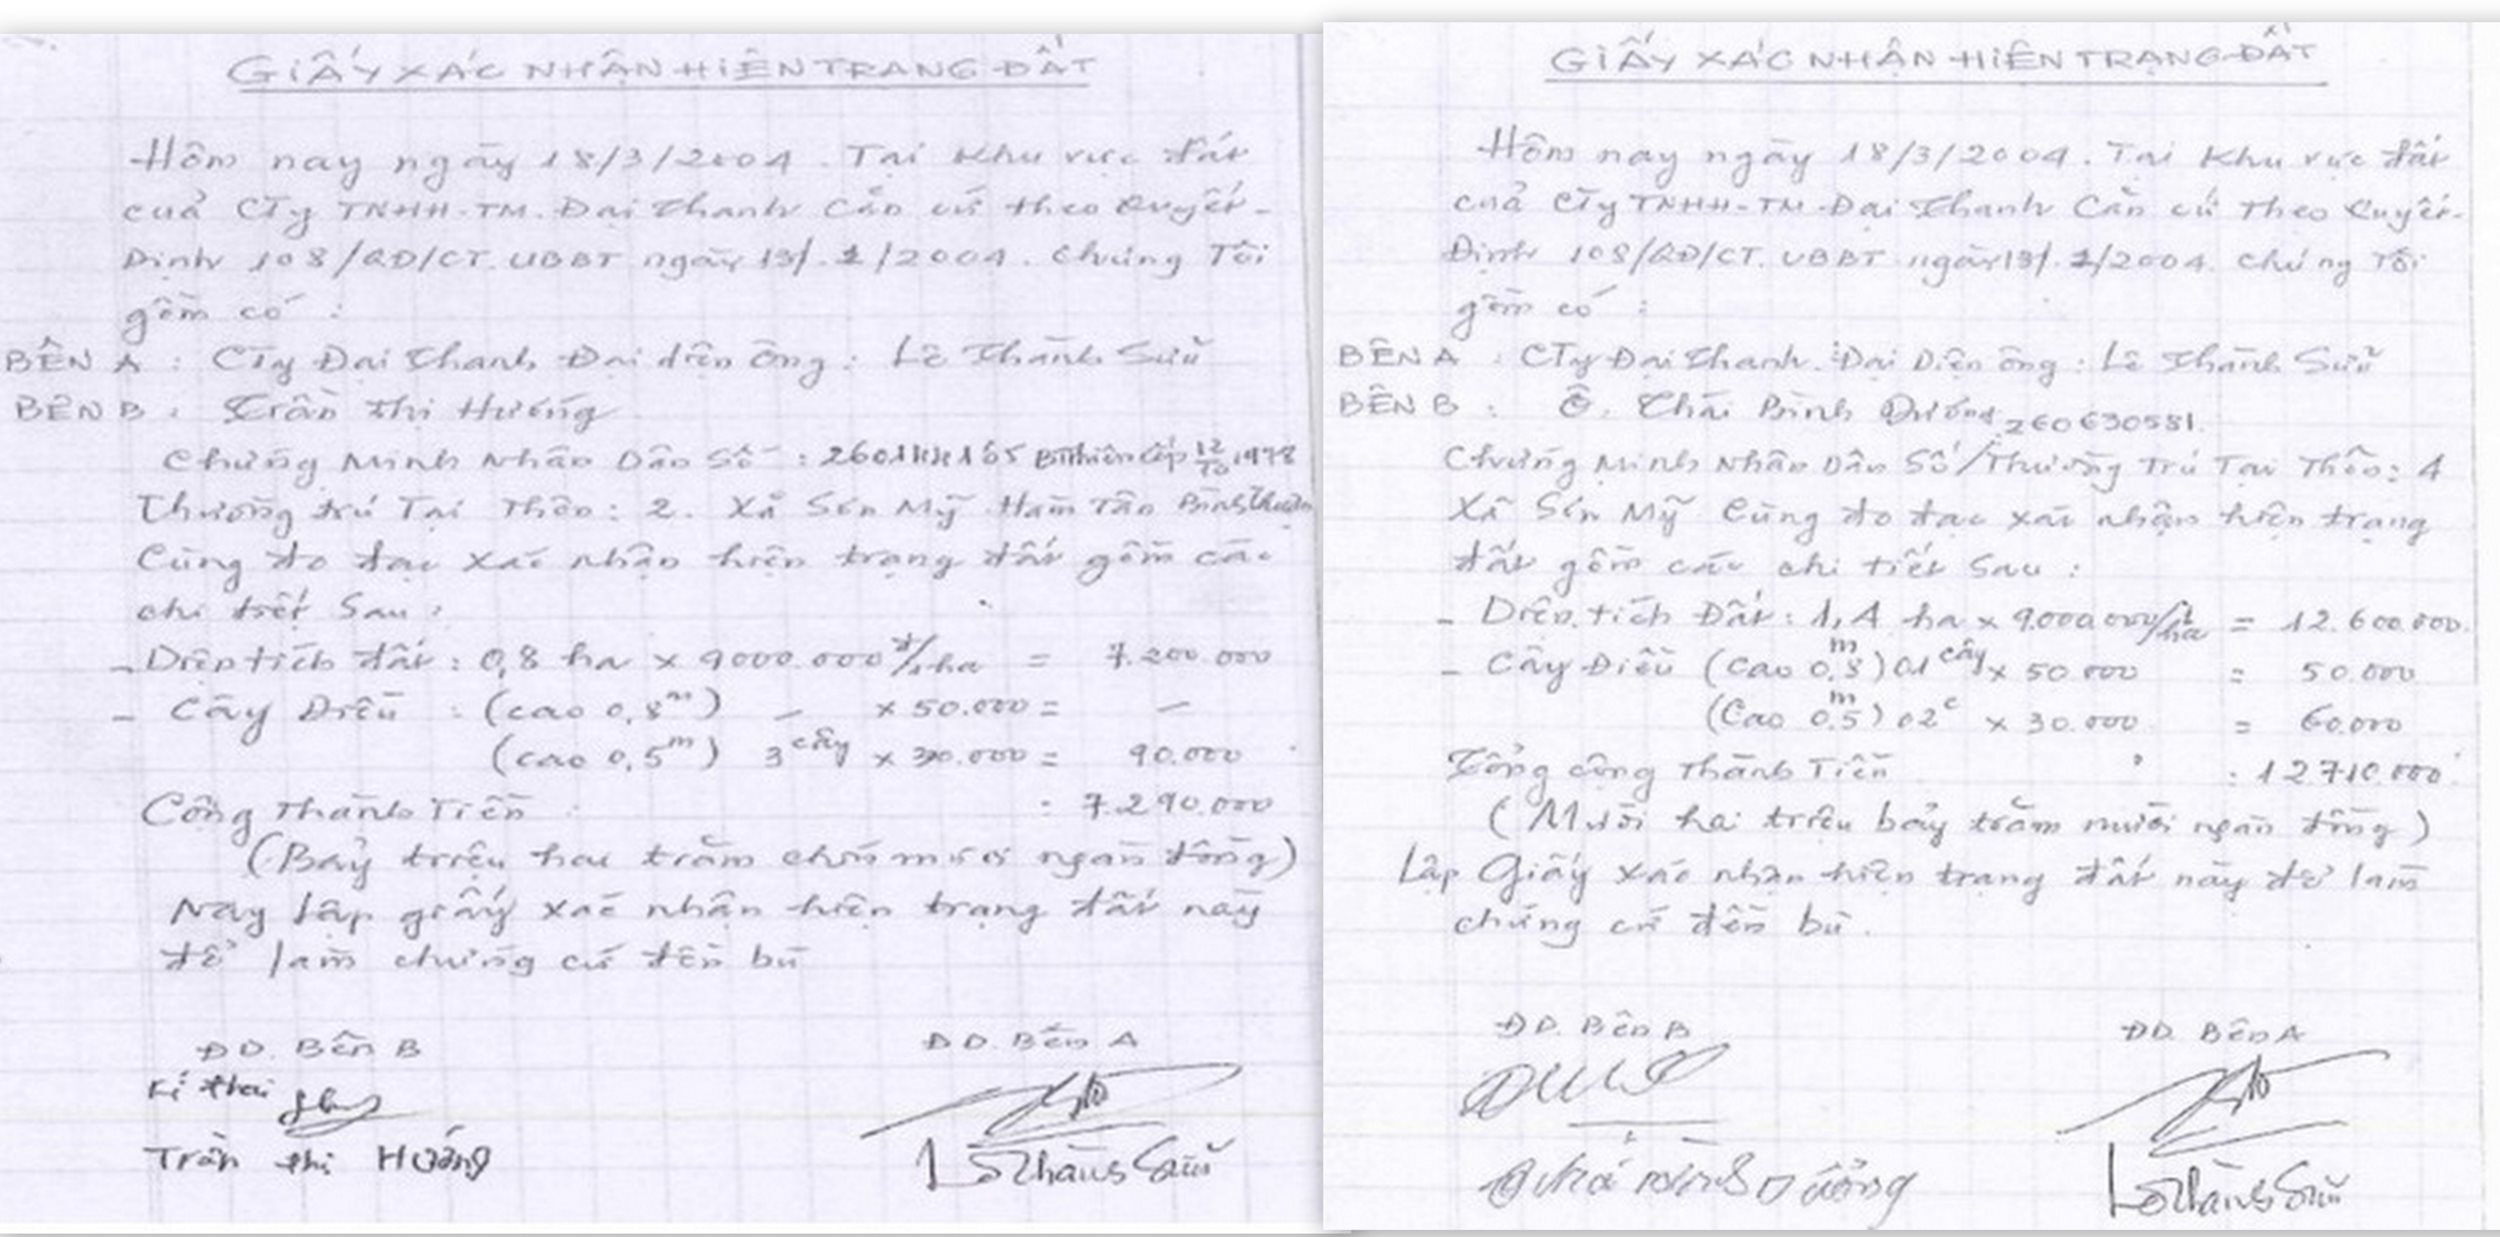 GIẤY XÁC NHẬN HIỆN TRẠNG ĐẤT
Hôm nay ngày 18/3/2004. Tại khu vực đất
của CTy TNHH-TM. Đại Thanh Căn cứ theo Quyết
Định 108/QĐ/CT.UBBT ngày 13/.1/2004. Chúng Tôi
gồm có :
BÊN A : CTy Đại Thanh Đại diện Ông : Lê Thành Sửu
BÊN B : Trần Thị Hướng
Chứng Minh Nhân Dân Số : cấp 12/10 1978
Thường trú Tại Thôn : 2. Xã Sơn Mỹ Hàm Tân Bình Thuận
Cùng đo đạc xác nhận hiện trạng đất gồm các
chi tiết sau :
- Diện tích đất : 0,8 ha x 9000.000đ/ha = 7.200.000
- Cây Điều : (cao 0,8m) - x 50.000 = -
(cao 0,5m) 3 cây x 30.000 = 90.000
Cộng Thành Tiền : 7.290.000
(Bảy triệu hai trăm chín mươi ngàn đồng)
Nay lập giấy xác nhận hiện trạng đất này
để làm chứng cứ đền bù
ĐD. Bên B ĐD. Bên A
Kí thay
Trần thị Hướng Lê Thành Sửu
GIẤY XÁC NHẬN HIỆN TRẠNG ĐẤT
Hôm nay ngày 18/3/2004. Tại khu vực đất
của CTy TNHH-TM-Đại Thanh Căn cứ Theo Quyết
Định 108/QĐ/CT.UBBT ngày 13/.1/2004. Chúng Tôi
gồm có :
BÊN A : CTy Đại Thanh. Đại Diện ông : Lê Thành Sửu
BÊN B : Ô. Thái Bình Dương 260630581.
Chứng Minh Nhân Dân Số / Thường Trú Tại Thôn : 4
Xã Sơn Mỹ Cùng đo đạc xác nhận hiện trạng
đất gồm các chi tiết Sau :
- Diện tích Đất : 1,4 ha x 9.000.000/đ/ha = 12.600.000.
- Cây Điều (Cao 0,8m) 01 cây x 50.000 = 50.000
(Cao 0.5m) 02c x 30.000 = 60.000
Tổng cộng Thành Tiền : 12.710.000
(Mười hai triệu bảy trăm mười ngàn đồng)
Lập Giấy xác nhận hiện trạng đất này để làm
chứng cứ đền bù.
ĐD. Bên B ĐD. Bên A
Thái Bình Dương Lê Thành Sửu